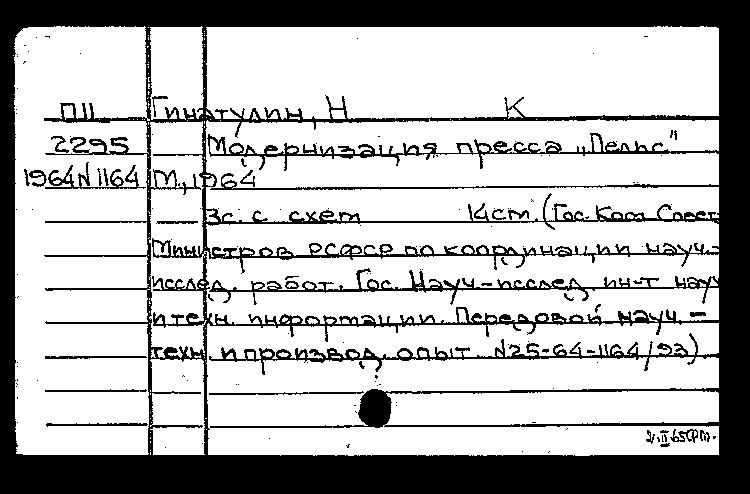 ПII Гинатулин, Н К
2295 Модернизация пресса „Пельс"
1964 N 1164 М, 1964
3с. с схем 14см. (Гос. Ком Совет
Министров РСФСР по координации науч.-
исслед. работ. Гос. Науч-исслед. ин-т науч
и техн. информации. Передовой науч. -
техн. и производ. опыт N25-64-1164/93)